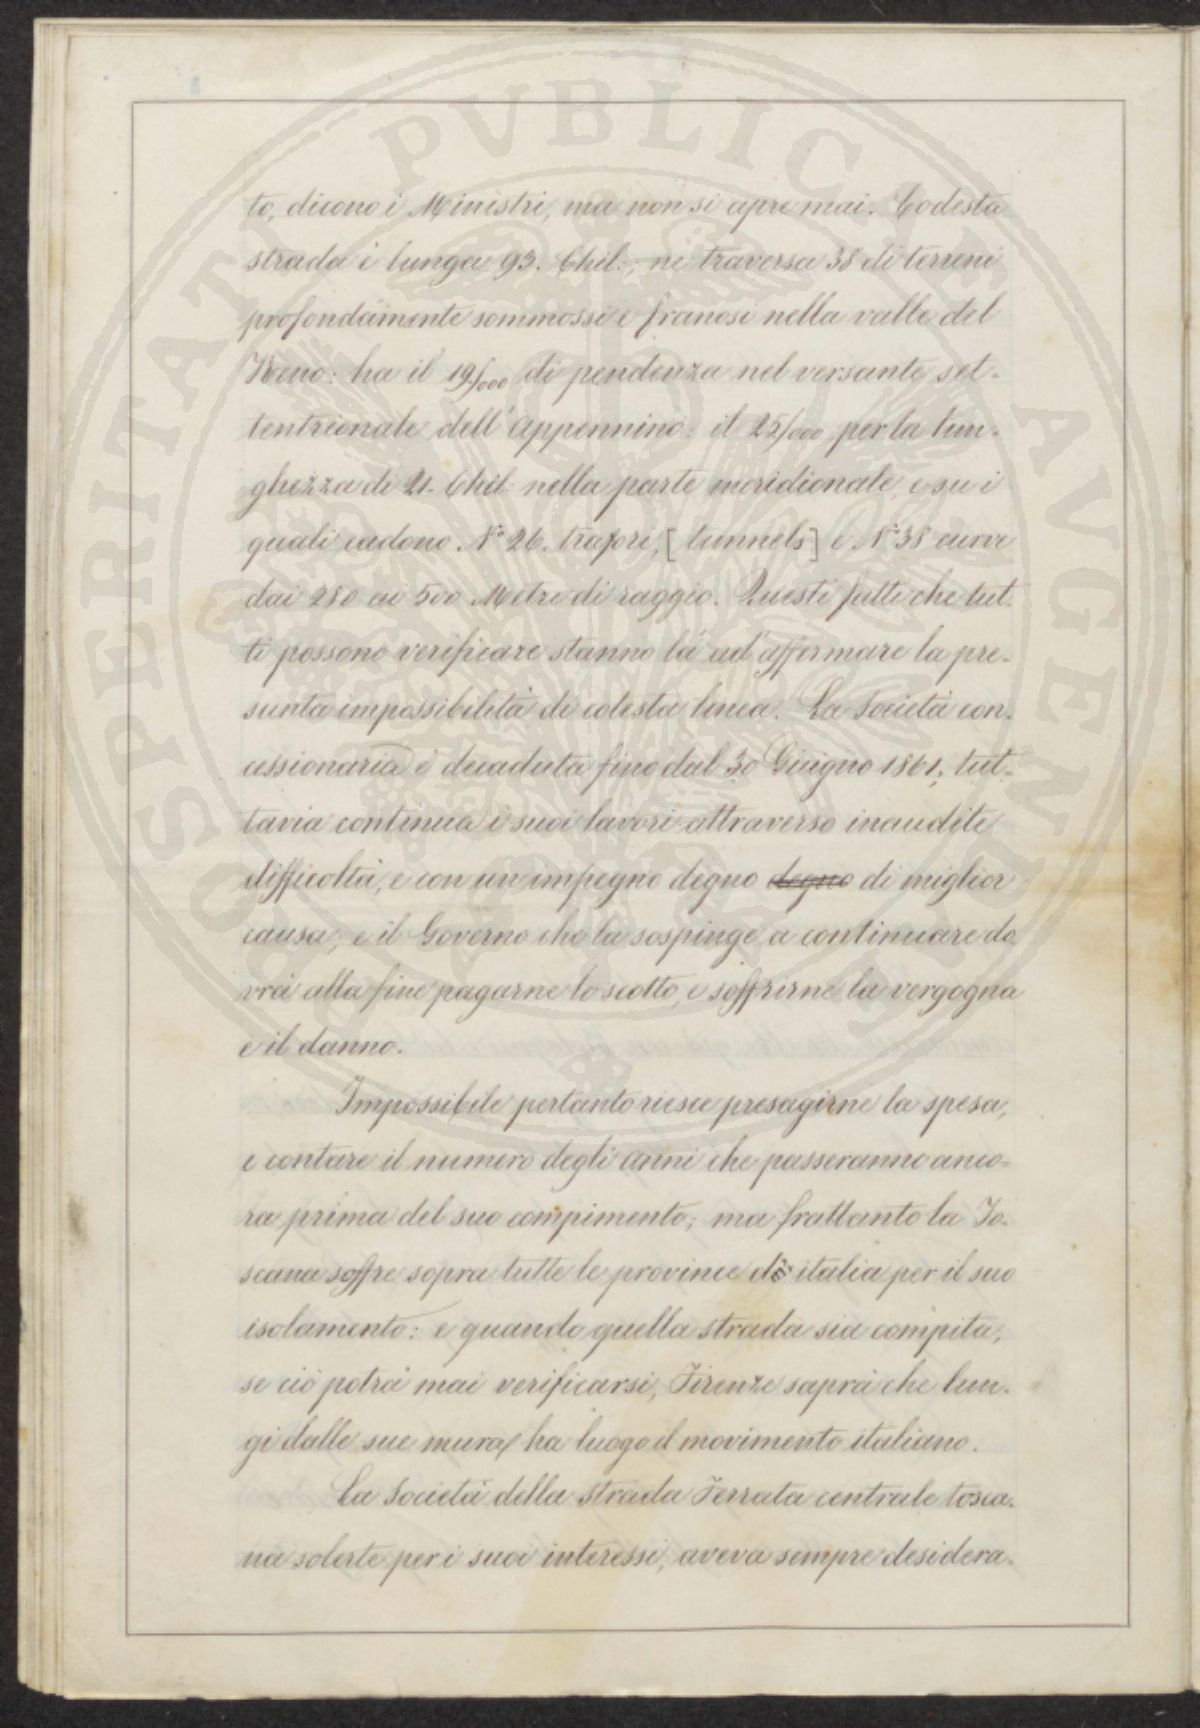 to, dicono i Ministri, ma non si apre mai. Codesta
strada è lunga 93. Chil., ne traversa 38 di terreni
profondamente sommossi e franosi nella valle del
Reno: ha il 19/000 di pendenza nel versante set-
tentrionale dell' Appennino: il 25/000 per la lun-
ghezza di 21. Chil. nella parte meridionale, e su i
quali cadono. N.° 26. trafori, [tunnels] e. N.° 38 curve
dai 280 ai 500 Metri di raggio. Questi fatti che tut-
ti possono verificare stanno là ad affermare la pre-
sunta impossibilità di cotesta linea. La Società con-
cessionaria è decaduta fino dal 30 Giugno 1861, tut-
tavia continua i suoi lavori attraverso inaudite
difficoltà, e con un impegno degno degno di miglior
causa, e il Governo che la sospinge a continuare do
vrà alla fine pagarne lo scotto, e soffrirne la vergogna
e il danno.
Impossibile pertanto riesce presagirne la spesa,
e contare il numero degli anni che passeranno anco-
ra prima del suo compimento; ma frattanto la To-
scana soffre sopra tutte le provincie d' italia per il suo
isolamento: e quando quella strada sia compita,
se ciò potrà mai verificarsi, Firenze saprà che lun-
gi dalle sue mura ha luogo il movimento italiano.
La Società della Strada Ferrata centrale tosca-
na solerte per i suoi interessi, aveva sempre desidera-
PROSPERITATI PVBLICAE AVGENDAE